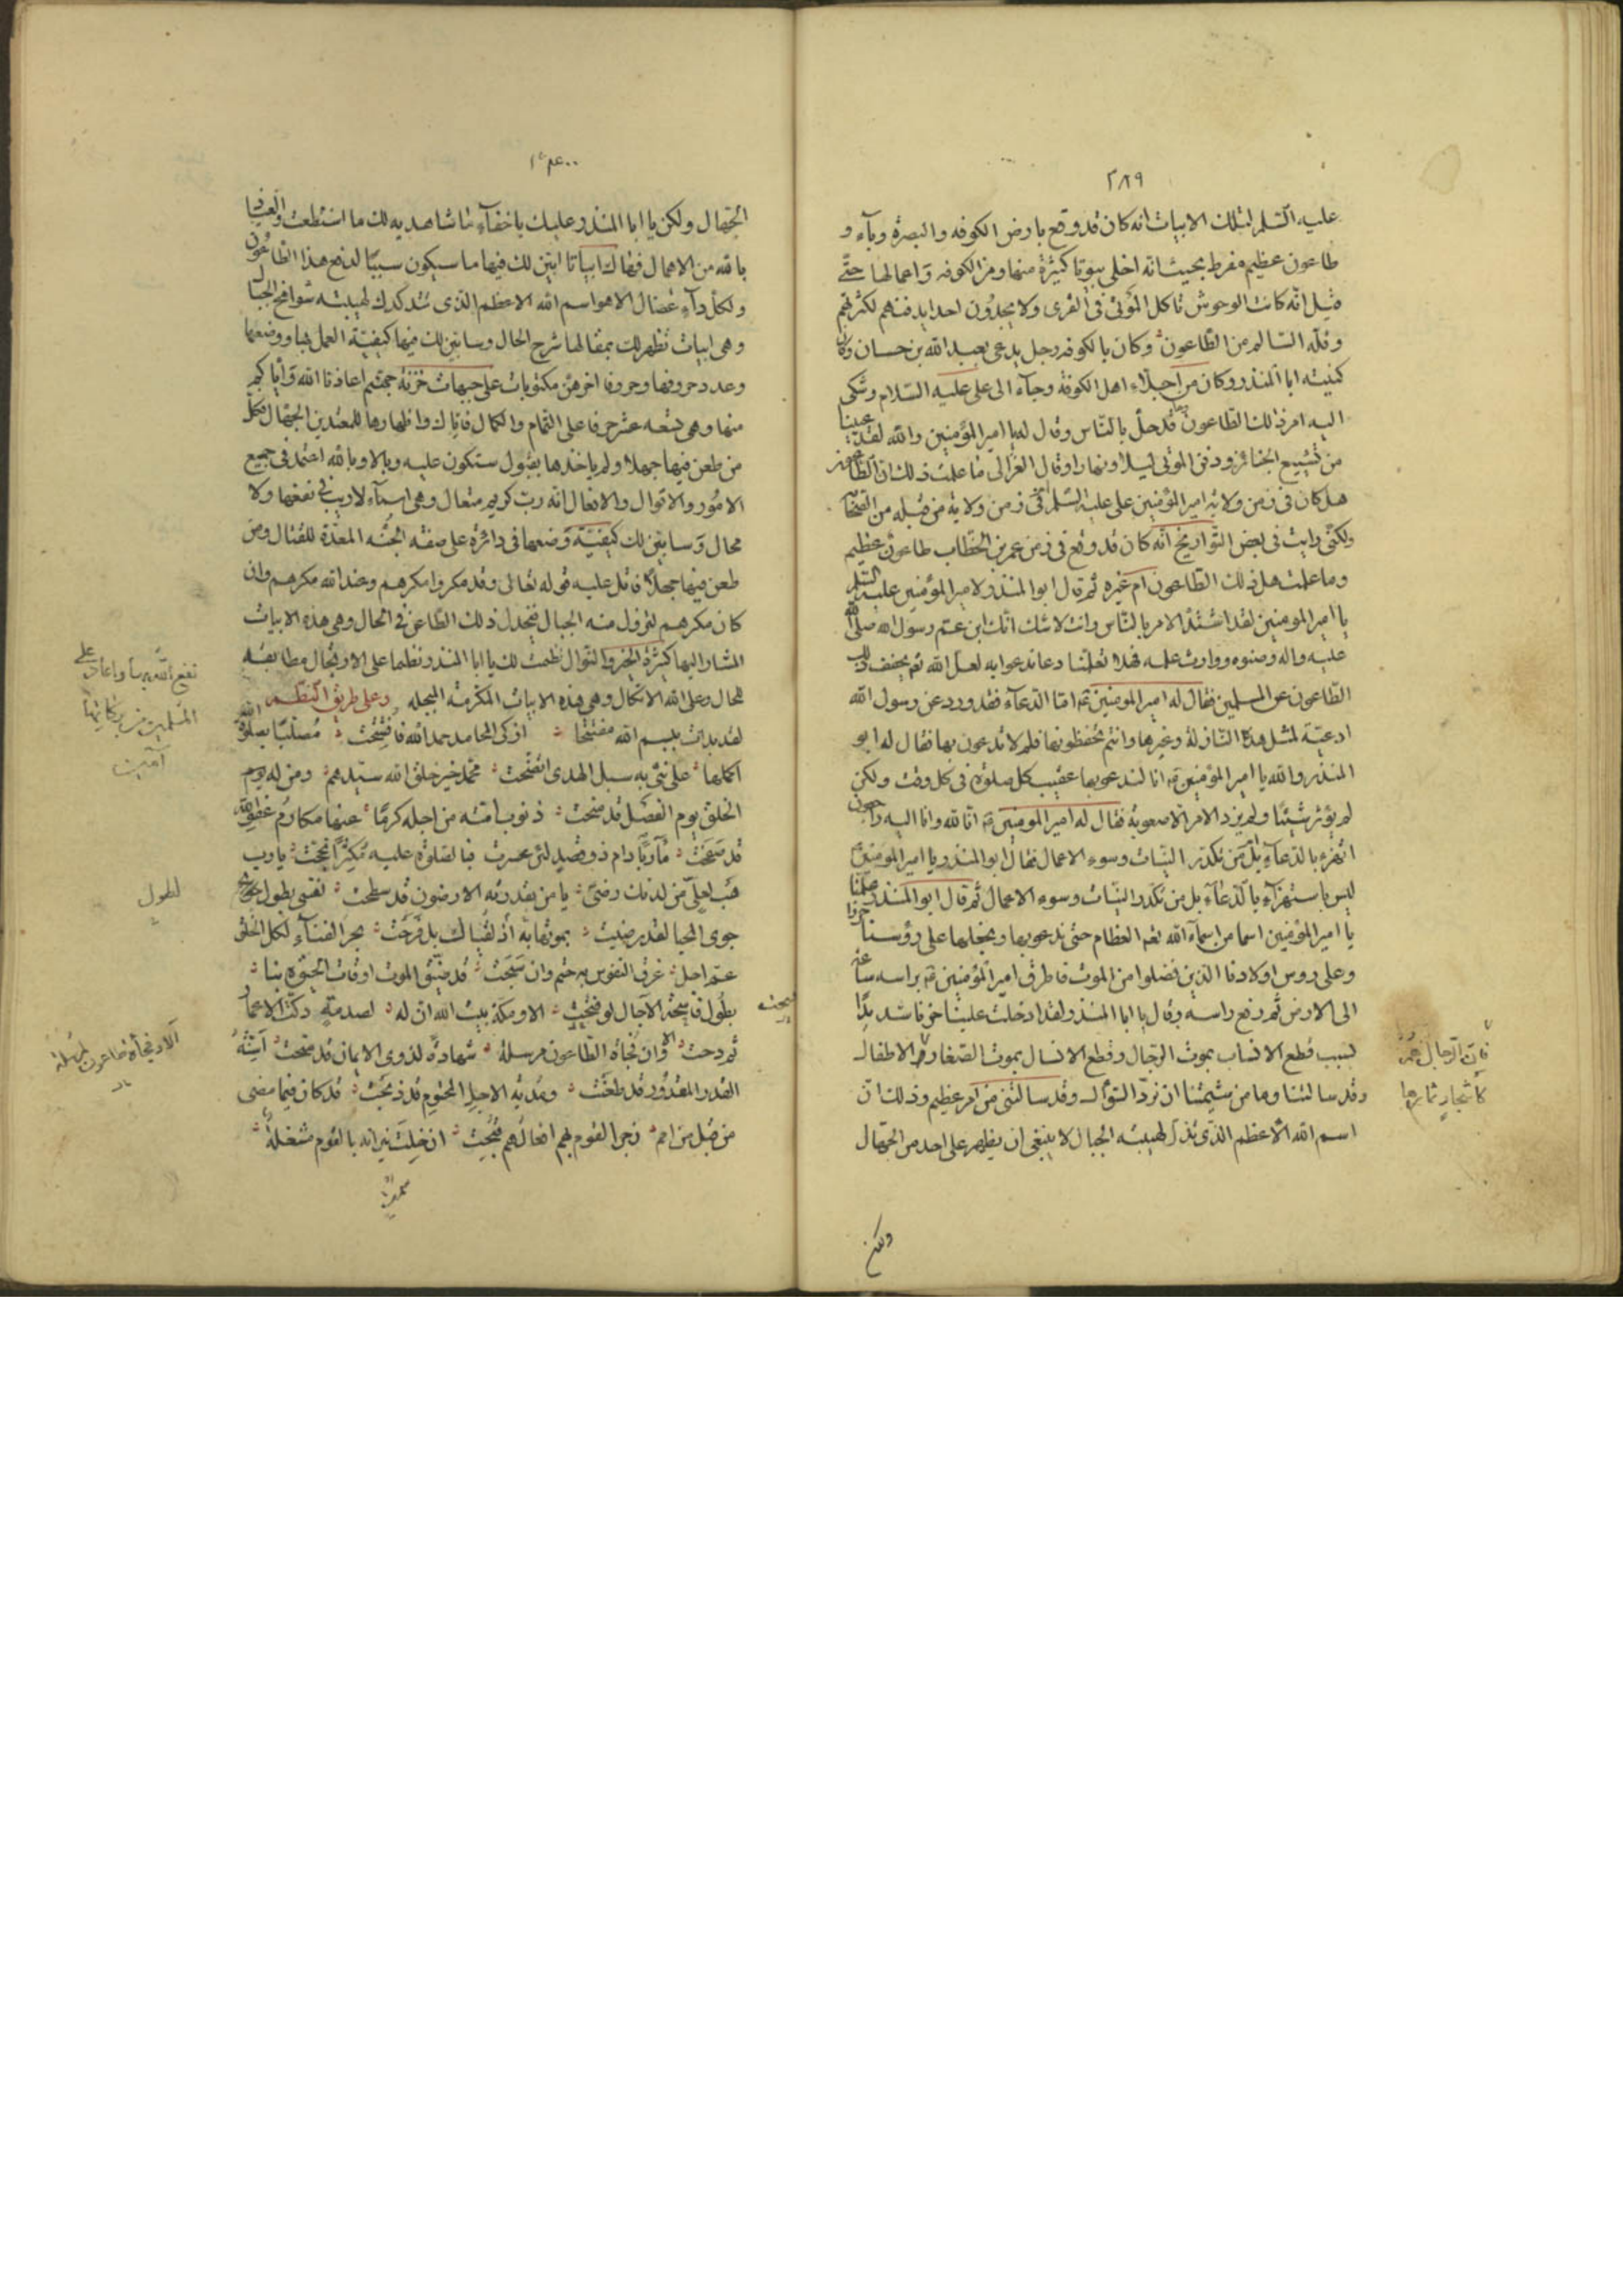 ٢٨٩
عليه السلم لتلك الابيات انه كان قد وقع بارض الكوفه والبصرة وبآء و
طاعون عظيم مفرط بحيث انه اخلى بيوتا كثيرة منها ومن الكوفه واعمالها حتّى
قيل انّه كانت الوحوش تاكل الموتى فى القرى ولا يجدون احدا يدفنهم لكثرتهم
وقلّه السّالم من الطّاعون وكان بالكوفه رجل يدعى بعبد الله بن حسان وكان
كنيته ابا المنذر وكان من اجلّاء اهل الكوفة وجآء الى على عليه السّلام وشكى
اليه امر ذلك الطاعون وما قد حلّ بالنّاس وقال له يا امير المؤمنين والله لقد عيينا
من تشييع الجنائز ودفن الموتى ليلا ونهارا وقال الغزالى ما علمت ذلك ان الطاعون
هل كان فى زمن ولاية امير المؤمنين على عليه السّلم ام فى زمن ولاية من قبله من الصحابة
ولكنّى رايت فى بعض التّواريخ انّه كان قد وقع فى زمن عمر بن الخطّاب طاعون عظيم
وما علمت هل ذلك الطّاعون ام غيره ثم قال ابو المنذر لامير المؤمنين عليه السّلم
يا امير المومنين لقد اشتدّ الامر بالنّاس وانت لا شك انّك ابن عمّ رسول الله صلّى الله
عليه واله وصنوه ووارث علمه فهلا تعلّمنا دعا ندعوا به لعلّ الله تع يخفف ذلك
الطّاعون عن المسلمين فقال له امير المومنين ع امّا الدّعآء فقد ورد عن رسول الله
ادعيّة لمثل هذه النّازلة وغيرها وانتم تحفظونها فلم لا تدعون بها فقال له ابو
المنذر والله يا امير المؤمنين ع انا لندعوا بها عقيب كل صلوة فى كل وقت ولكن
لم يؤثر شيئا ولم يزد الامر الّا صعوبة فقال له امير المومنين ع انّا لله وانّا اليه راجعون
اتهزء بالدّعآء بل من تكدّر النيّات وسوء الاعمال فقال ابو المنذر يا امير المومنين
ليس باستهزآء بالدّعآء بل من تكدر النيّات وسوء الاعمال ثم قال ابو المنذر علّمنا
يا امير المؤمنين اسما من اسمآء الله تع العظام حتى ندعوا بها ونجعلها على رؤسنا حرزا
وعلى روس اولادنا الذين فضلوا من الموت فاطرق امير المؤمنين ع براسه ساعة
الى الارض ثم رفع راسه وقال يا ابا المنذر ولقد ادخلت علينا حزنا شديدًا
بسبب قطع الانساب بموت الرّجال وقطع الانسال بموت الصّغار والاطفال
وقد سالتنا وما من شيمتنا ان نردّ السّوال وقد سالتنى من امر عظيم وذلك انّ
اسم الله الاعظم الّذى تذلّ لهيبته الجبال لا ينبغى ان يظهر على احد من الجهّال
ولكن
فان الرجال
كاشجار ثمارها
الجهال ولكن يا ابا المنذر عليك باخفآء ما شاهد به لك ما استطعت والعياذ
بالله من الاهمال فهاك ابياتا ابيّن لك فيها ما سيكون سببًا لدفع هذا الطّاعون
ولكل دآء عضال الا هو اسم الله الاعظم الّذى تتدكدك لهيبته شوامخ الجبال
وهى ابيات تظهر لك بمقالها شرح الحال وسابيّن لك فيها كيفيّة العمل بها ووضعها
وعدد حروفها وحروفا اخر هنّ مكتوبات على جبهات خزنة جهنّم اعاذنا الله وايّاكم
منها وهى تسعه عشر حرفا على التّمام والكمال فايّاك واظهارها للمعتدين الجهّال فكلّ
من طعن فيها جهلا ولم ياخذها بقبول ستكون عليه وبالا وبالله اعتمد فى جميع
الامور والاقوال والافعال انه ربّ كريم متعال وهى اسمآء لا ريب فى نفعها ولا
محال وسابيّن لك كيفيّة وضعها فى دائرة على صفة الجُنّه المعدّة للقتال ومن
طعن فيها جهلًا فاتل عليه قوله تعالى وقد مكروا مكرهم وعند الله مكرهم وان
كان مكرهم لتزول منه الجبال فيخذل ذلك الطّاعن فى الحال وهى هذه الابيات
المشار اليها كثيرة الخير والنّوال نظمت لك يا ابا المنذر نظما على الارتجال مطابقه
للحال وعلى الله الاتكال وهى هذه الابيات المكرمة المبجله وعلى طريق النّظم
لقد بدات ببسم الله مفتتحا اذكى المحامد حمد الله فافتتحت مُصلّيًا بصلوة الله
اكملها على نبىّ به سبل الهدى اتّضحت محمّد خير خلق الله سيّدهم ومن له يوم
الخلق يوم الفصل قد منحت ذنوب امّته من اجله كرمًا عنها مكارم عفو الله
قد سمحت
هَب لعلىّ من لدنك رضىً يا من بقدرته الارضون قد سطحت نفسى بطول
جوى المحيا لقد رضيت بموتها به اذ لقياك بل فرحت بحر الفنآء لكل الخلق
عمّ اجل غرق النّفوس به حتم وان سبحت قد ضيّق الموت اوقات الحيٰوه بنا
بطول فاسحة الآجال لو فتحت الا ومكة بيت الله ان له لصدمةٍ دكّت الاعمار
ثم دحت الا وان نجاة الطّاعون مرسلة شهادة لذوى الايمان قد منحت
القدر المقدور قد طعنت ومُديه الاجل المحتوم قد ذبحت قد كان فيما مضى
من قبل من امم زجر القوم بهم افعالهم قبحت ان خلت نيرانه بالقوم مشعلة
نفع الله بها واعاد على
المسلمين من بركاتها
آمين
لطول
الا ونجاة طاعون لمرسلة